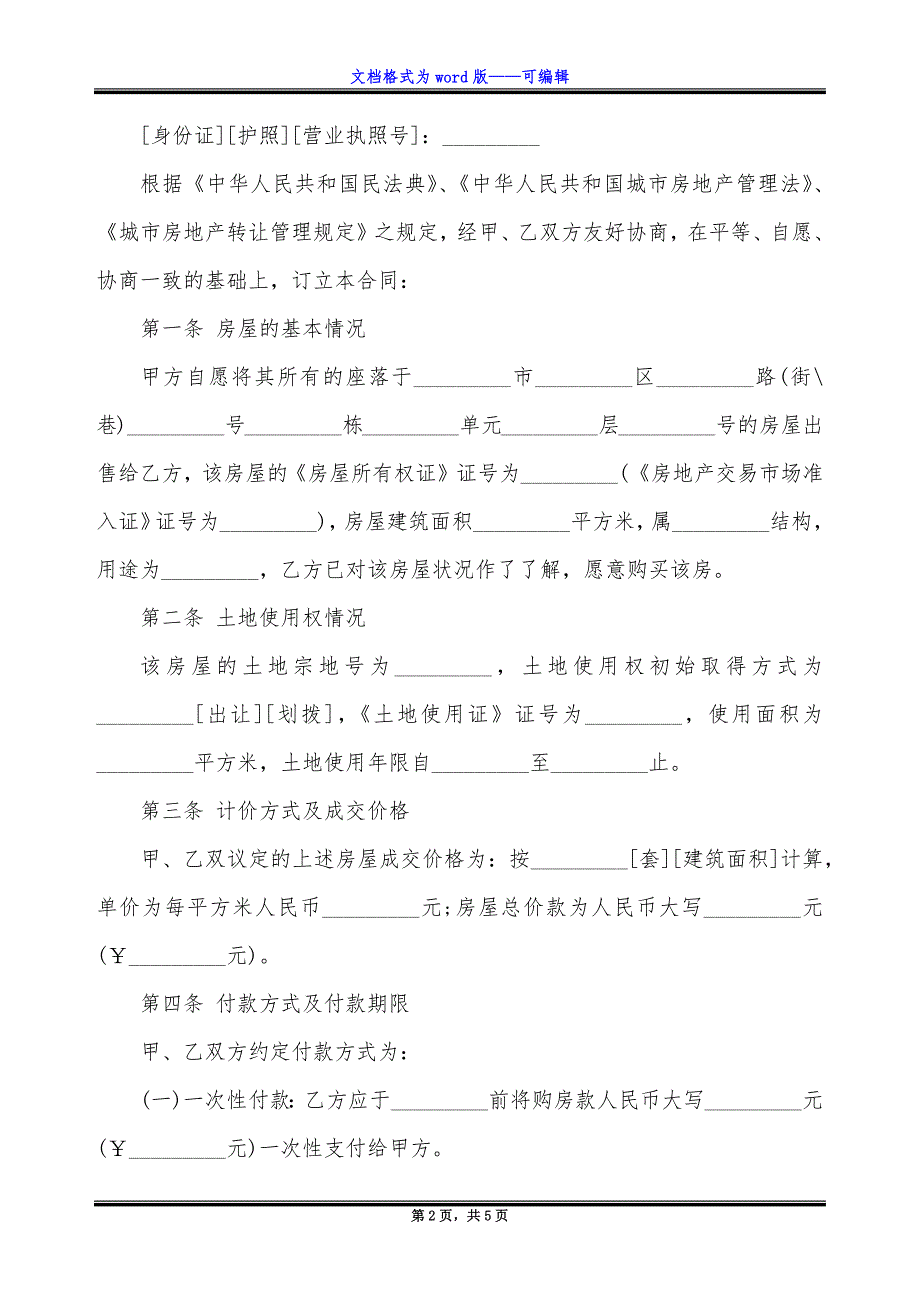 文档格式为 word 版——可编辑
[身份证][护照][营业执照号]：_________
根据《中华人民共和国民法典》、《中华人民共和国城市房地产管理法》、
《城市房地产转让管理规定》之规定，经甲、乙双方友好协商，在平等、自愿、
协商一致的基础上，订立本合同：
第一条 房屋的基本情况
甲方自愿将其所有的座落于_________市_________区_________路(街\
巷)_________号_________栋_________单元_________层_________号的房屋出
售给乙方，该房屋的《房屋所有权证》证号为_________(《房地产交易市场准
入证》证号为_________)，房屋建筑面积_________平方米，属_________结构，
用途为_________，乙方已对该房屋状况作了了解，愿意购买该房。
第二条 土地使用权情况
该房屋的土地宗地号为_________，土地使用权初始取得方式为
_________[出让][划拨]，《土地使用证》证号为_________，使用面积为
_________平方米，土地使用年限自_________至_________止。
第三条 计价方式及成交价格
甲、乙双议定的上述房屋成交价格为：按_________[套][建筑面积]计算，
单价为每平方米人民币_________元;房屋总价款为人民币大写_________元
(￥_________元)。
第四条 付款方式及付款期限
甲、乙双方约定付款方式为：
(一)一次性付款：乙方应于_________前将购房款人民币大写_________元
(￥_________元)一次性支付给甲方。
第 2 页，共 5 页